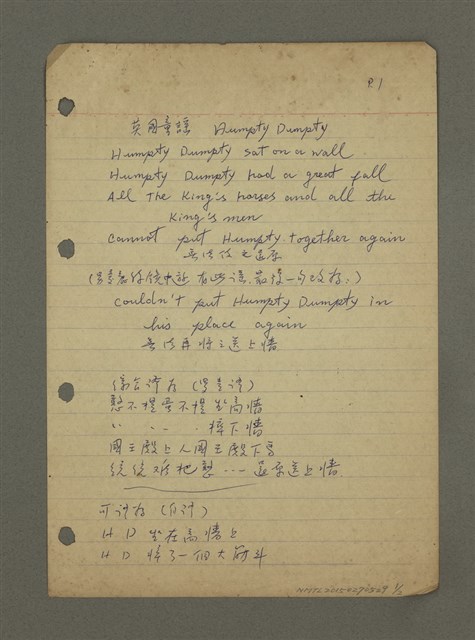 P.1
英國童謠 Humpty Dumpty
Humpty Dumpty sat on a wall
Humpty Dumpty had a great fall
All the King's horses and all the
King's men
Cannot put Humpty together again
無法使之還原
有此謠，最後一句改為：)
Couldn't put Humpty Dumpty in
his place again
無法再將之送上牆
綜合譯為
憨不提蛋不提坐高牆
摔下牆
國王殿上人國王殿下馬
統統難把憨…還原送上牆
可譯為
H D 坐在高牆上
H D 摔了一個大筋斗